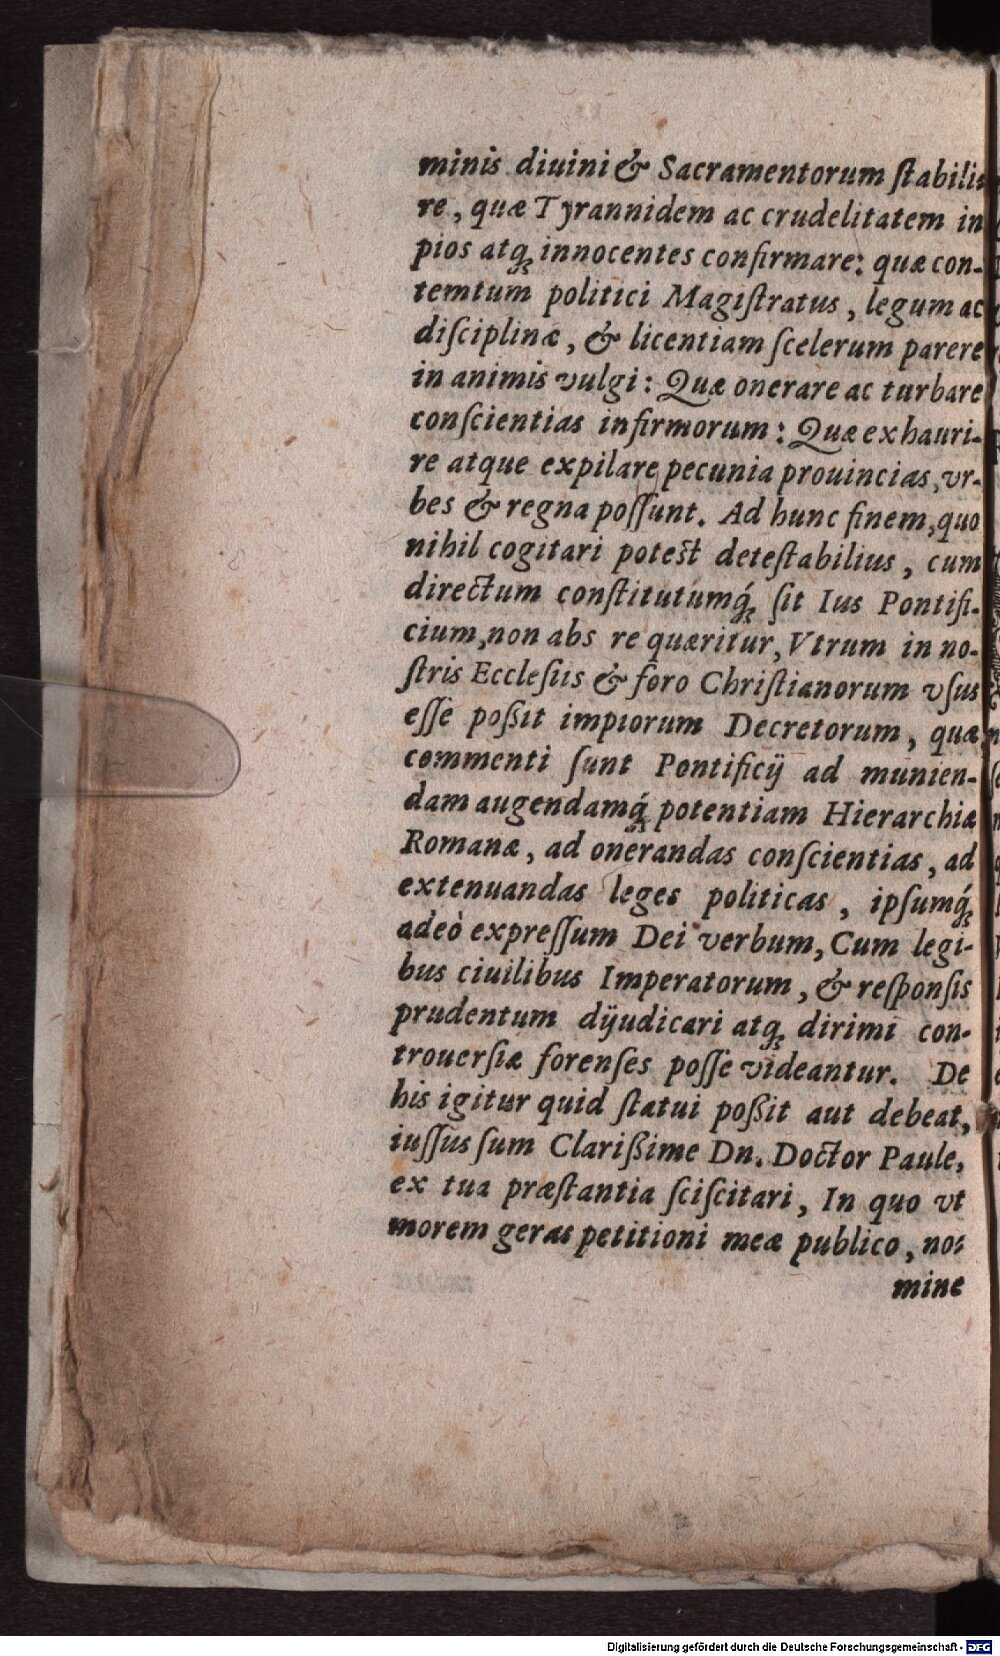 minis diuini & Sacramentorum ſtabili-
re, quæ Tyrannidem ac crudelitatem in
pios atq; innocentes confirmare: quæ con-
temtum politici Magiſtratus, legum ac
diſciplinæ, & licentiam ſcelerum parere
in animis vulgi: Quæ onerare ac turbare
conſcientias infirmorum: Quæ exhauri-
re atque expilare pecunia prouincias, vr-
bes & regna poſſunt. Ad hunc finem, quo
nihil cogitari poteſt deteſtabilius, cum
directum conſtitutumq́; ſit Ius Pontifi-
cium, non abs re quæritur, Vtrum in no-
ſtris Eccleſiis & foro Chriſtianorum vſus
eſſe poßit impiorum Decretorum, quæ
commenti ſunt Pontificij ad munien-
dam augendamq́; potentiam Hierarchiæ
Romanæ, ad onerandas conſcientias, ad
extenuandas leges politicas, ipſumq́;
adeò expreſſum Dei verbum, Cum legi-
bus ciuilibus Imperatorum, & reſponſis
prudentum dijudicari atq; dirimi con-
trouerſiæ forenſes poſſe videantur. De
his igitur quid ſtatui poßit aut debeat,
iuſſus ſum Clarißime Dn. Doctor Paule,
ex tua præſtantia ſciſcitari, In quo vt
morem geras petitioni meæ publico, no-
mine
Digitalisierung gefördert durch die Deutsche Forschungsgemeinschaft - DFG